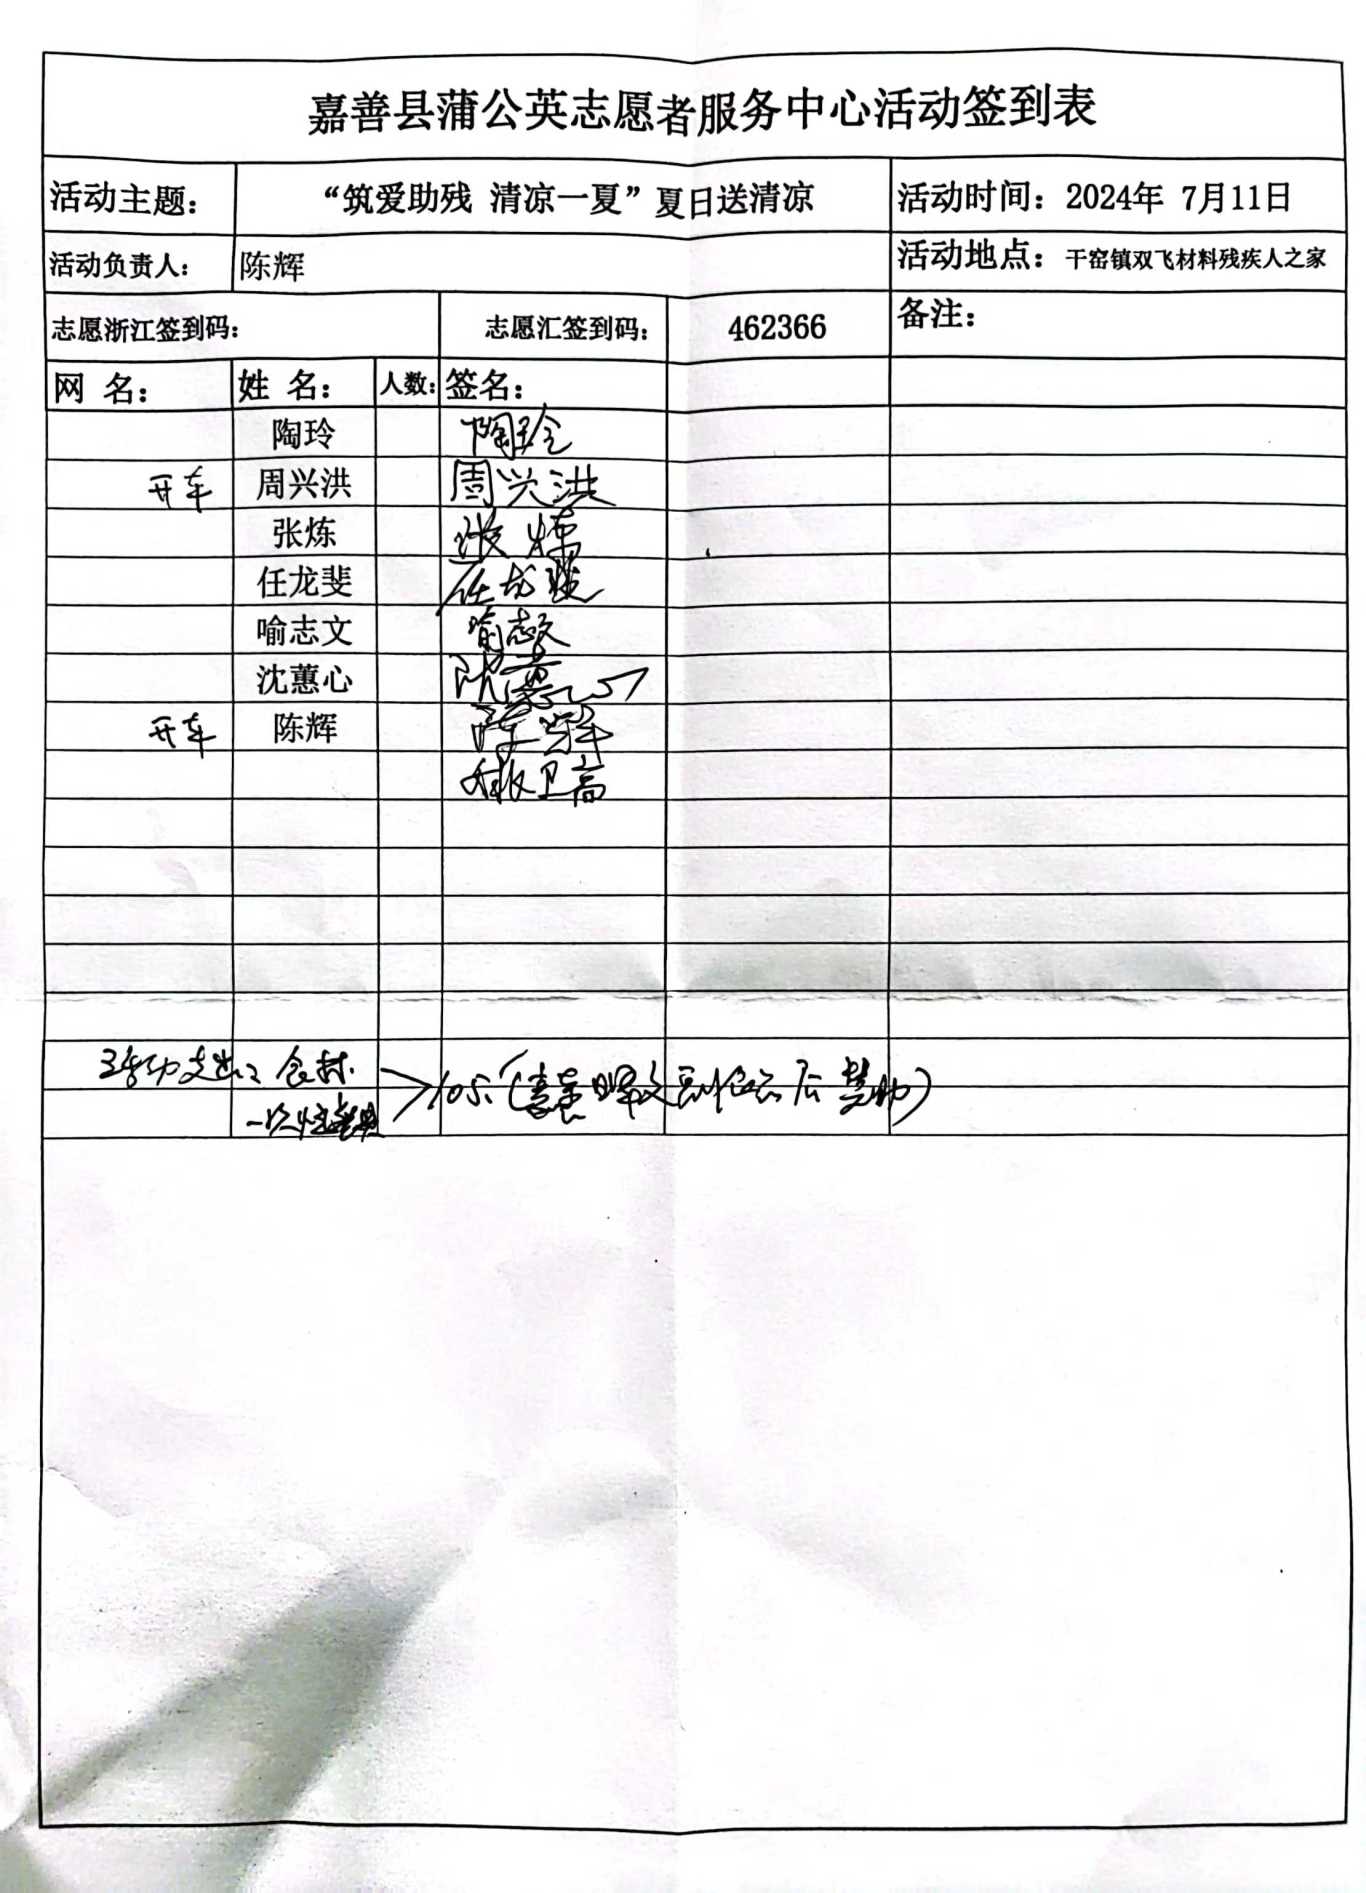 嘉善县蒲公英志愿者服务中心活动签到表
活动主题： “筑爱助残 清凉一夏”夏日送清凉 活动时间：2024年 7月11日
活动负责人： 陈辉 活动地点：干窑镇双飞材料残疾人之家
志愿浙江签到码： 志愿汇签到码： 462366 备注：
网 名： 姓 名： 人数： 签名：
陶玲 陶玲
开车 周兴洪 周兴洪
张炼 张炼
任龙斐 任龙斐
喻志文 喻志文
沈蕙心 沈蕙心
开车 陈辉 陈辉
卫高
活动支出： 食材 105.
一次性